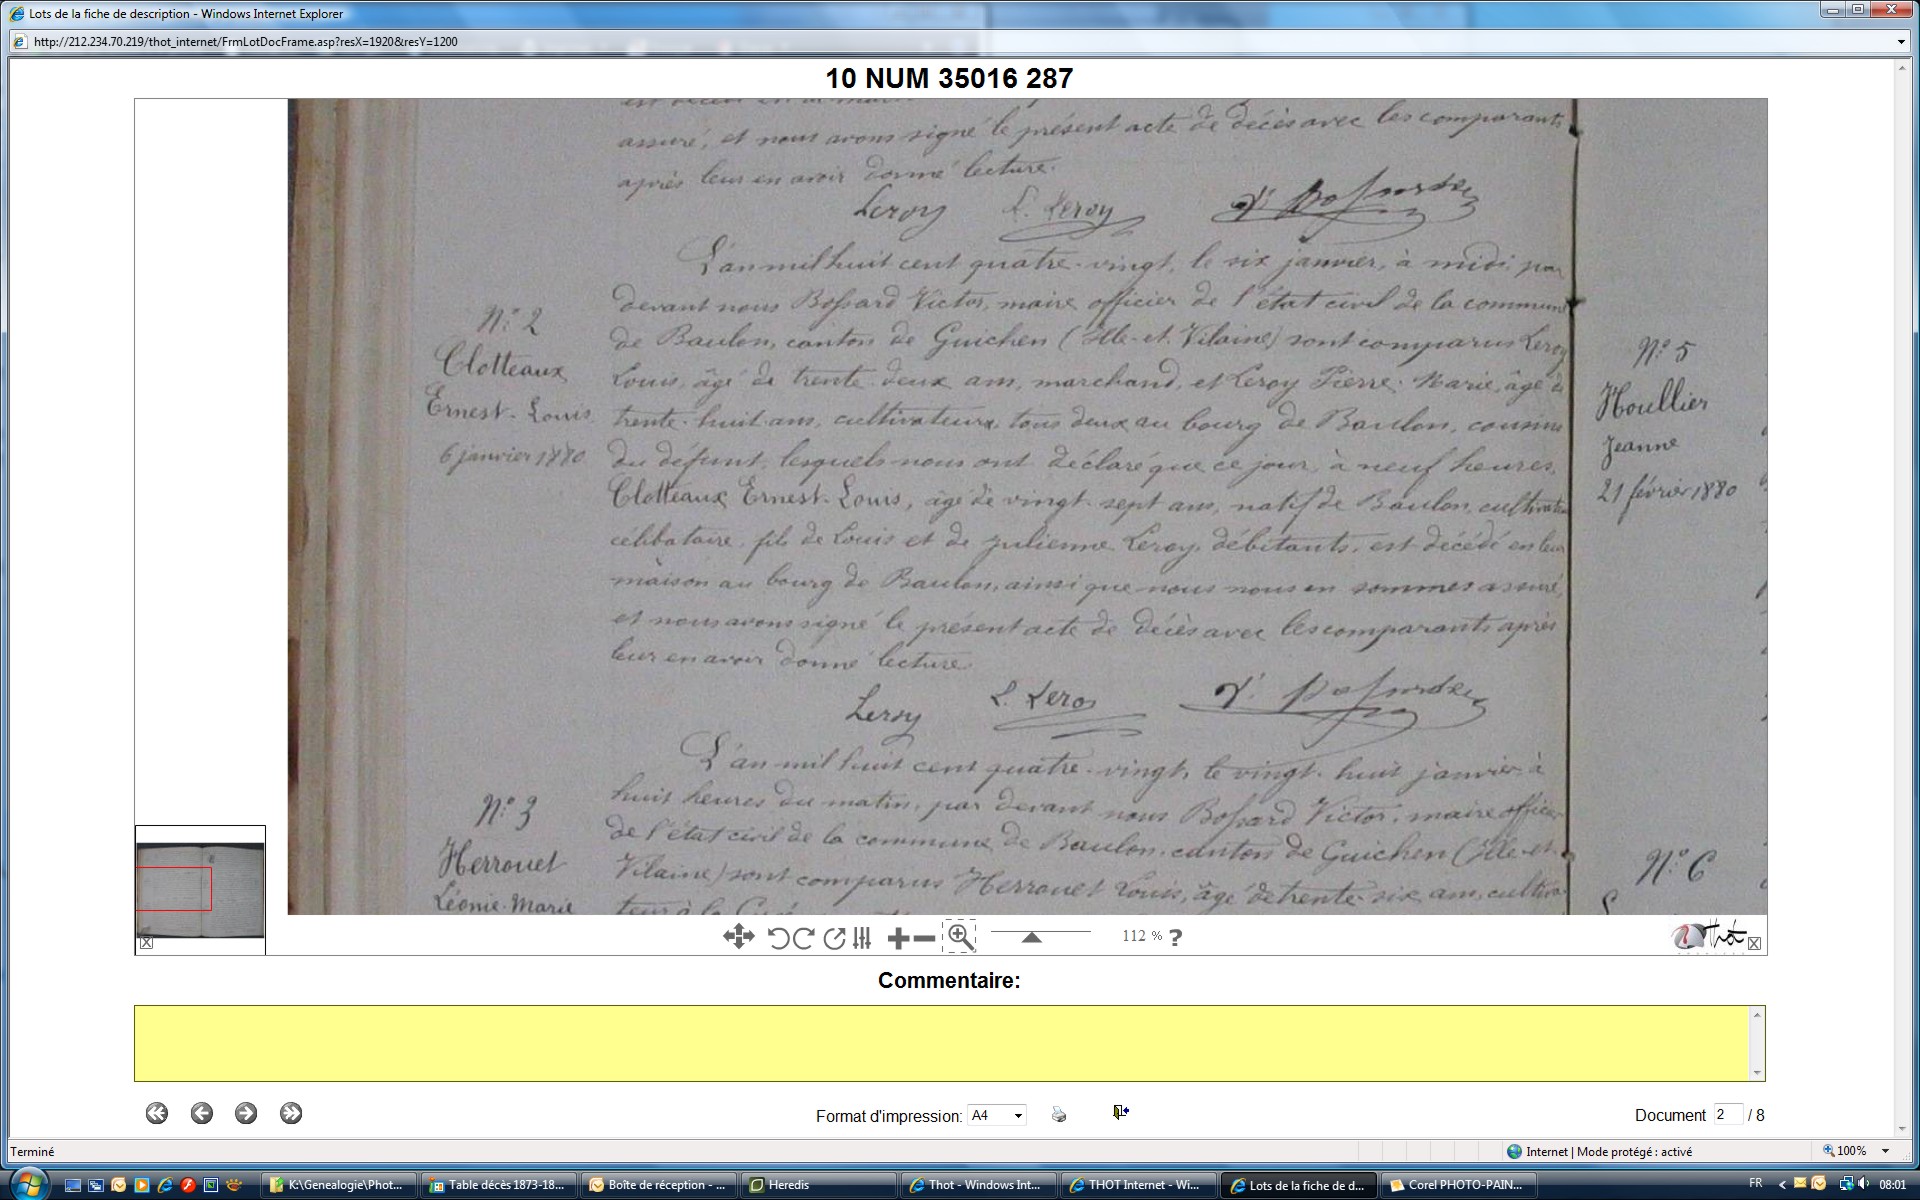 Lots de la fiche de description - Windows Internet Explorer
http://212.234.70.219/thot_internet/FrmLotDocFrame.asp?resX=1920&resY=1200
10 NUM 35016 287
assuré, et nous avons signé le présent acte de décès avec les comparants
après leur en avoir donné lecture.
Leroy L. Leroy
L'an mil huit cent quatre-vingt, le six janvier, à midi, par
devant nous Bossard Victor, maire officier de l'état civil de la commune
N° 2
Clotteaux
Ernest-Louis
6 janvier 1880
de Baulon, canton de Guichen (Ille-et-Vilaine) sont comparus Leroy
Louis, âgé de trente-deux ans, marchand, et Leroy Pierre-Marie, âgé de
trente-huit ans, cultivateurs, tous deux au bourg de Baulon, cousins
du défunt, lesquels nous ont déclaré que ce jour, à neuf heures,
Clotteaux Ernest-Louis, âgé de vingt-sept ans, natif de Baulon, cultivateur
célibataire, fils de Louis et de Julienne Leroy, débitants, est décédé en leur
maison au bourg de Baulon, ainsi que nous nous en sommes assuré,
et nous avons signé le présent acte de décès avec les comparants après
leur en avoir donné lecture.
Leroy L. Leroy
L'an mil huit cent quatre-vingt, le vingt-huit janvier, à
N° 3
Herrouet
Léonie-Marie
huit heures du matin, par devant nous Bossard Victor, maire officier
de l'état civil de la commune de Baulon, canton de Guichen (Ille-et-
Vilaine) sont comparus Herrouet Louis, âgé de trente-six ans, cultiva-
teur à la
N° 5
Houllier
Jeanne
21 février 1880
N° 6
112 % ?
Thot
Commentaire:
Format d'impression: A4
Document 2 / 8
Terminé
Internet | Mode protégé : activé
100%
K:\Genealogie\Phot...
Table décès 1873-18...
Boîte de réception - ...
Heredis
Thot - Windows Int...
THOT Internet - Wi...
Lots de la fiche de d...
Corel PHOTO-PAIN...
FR
08:01